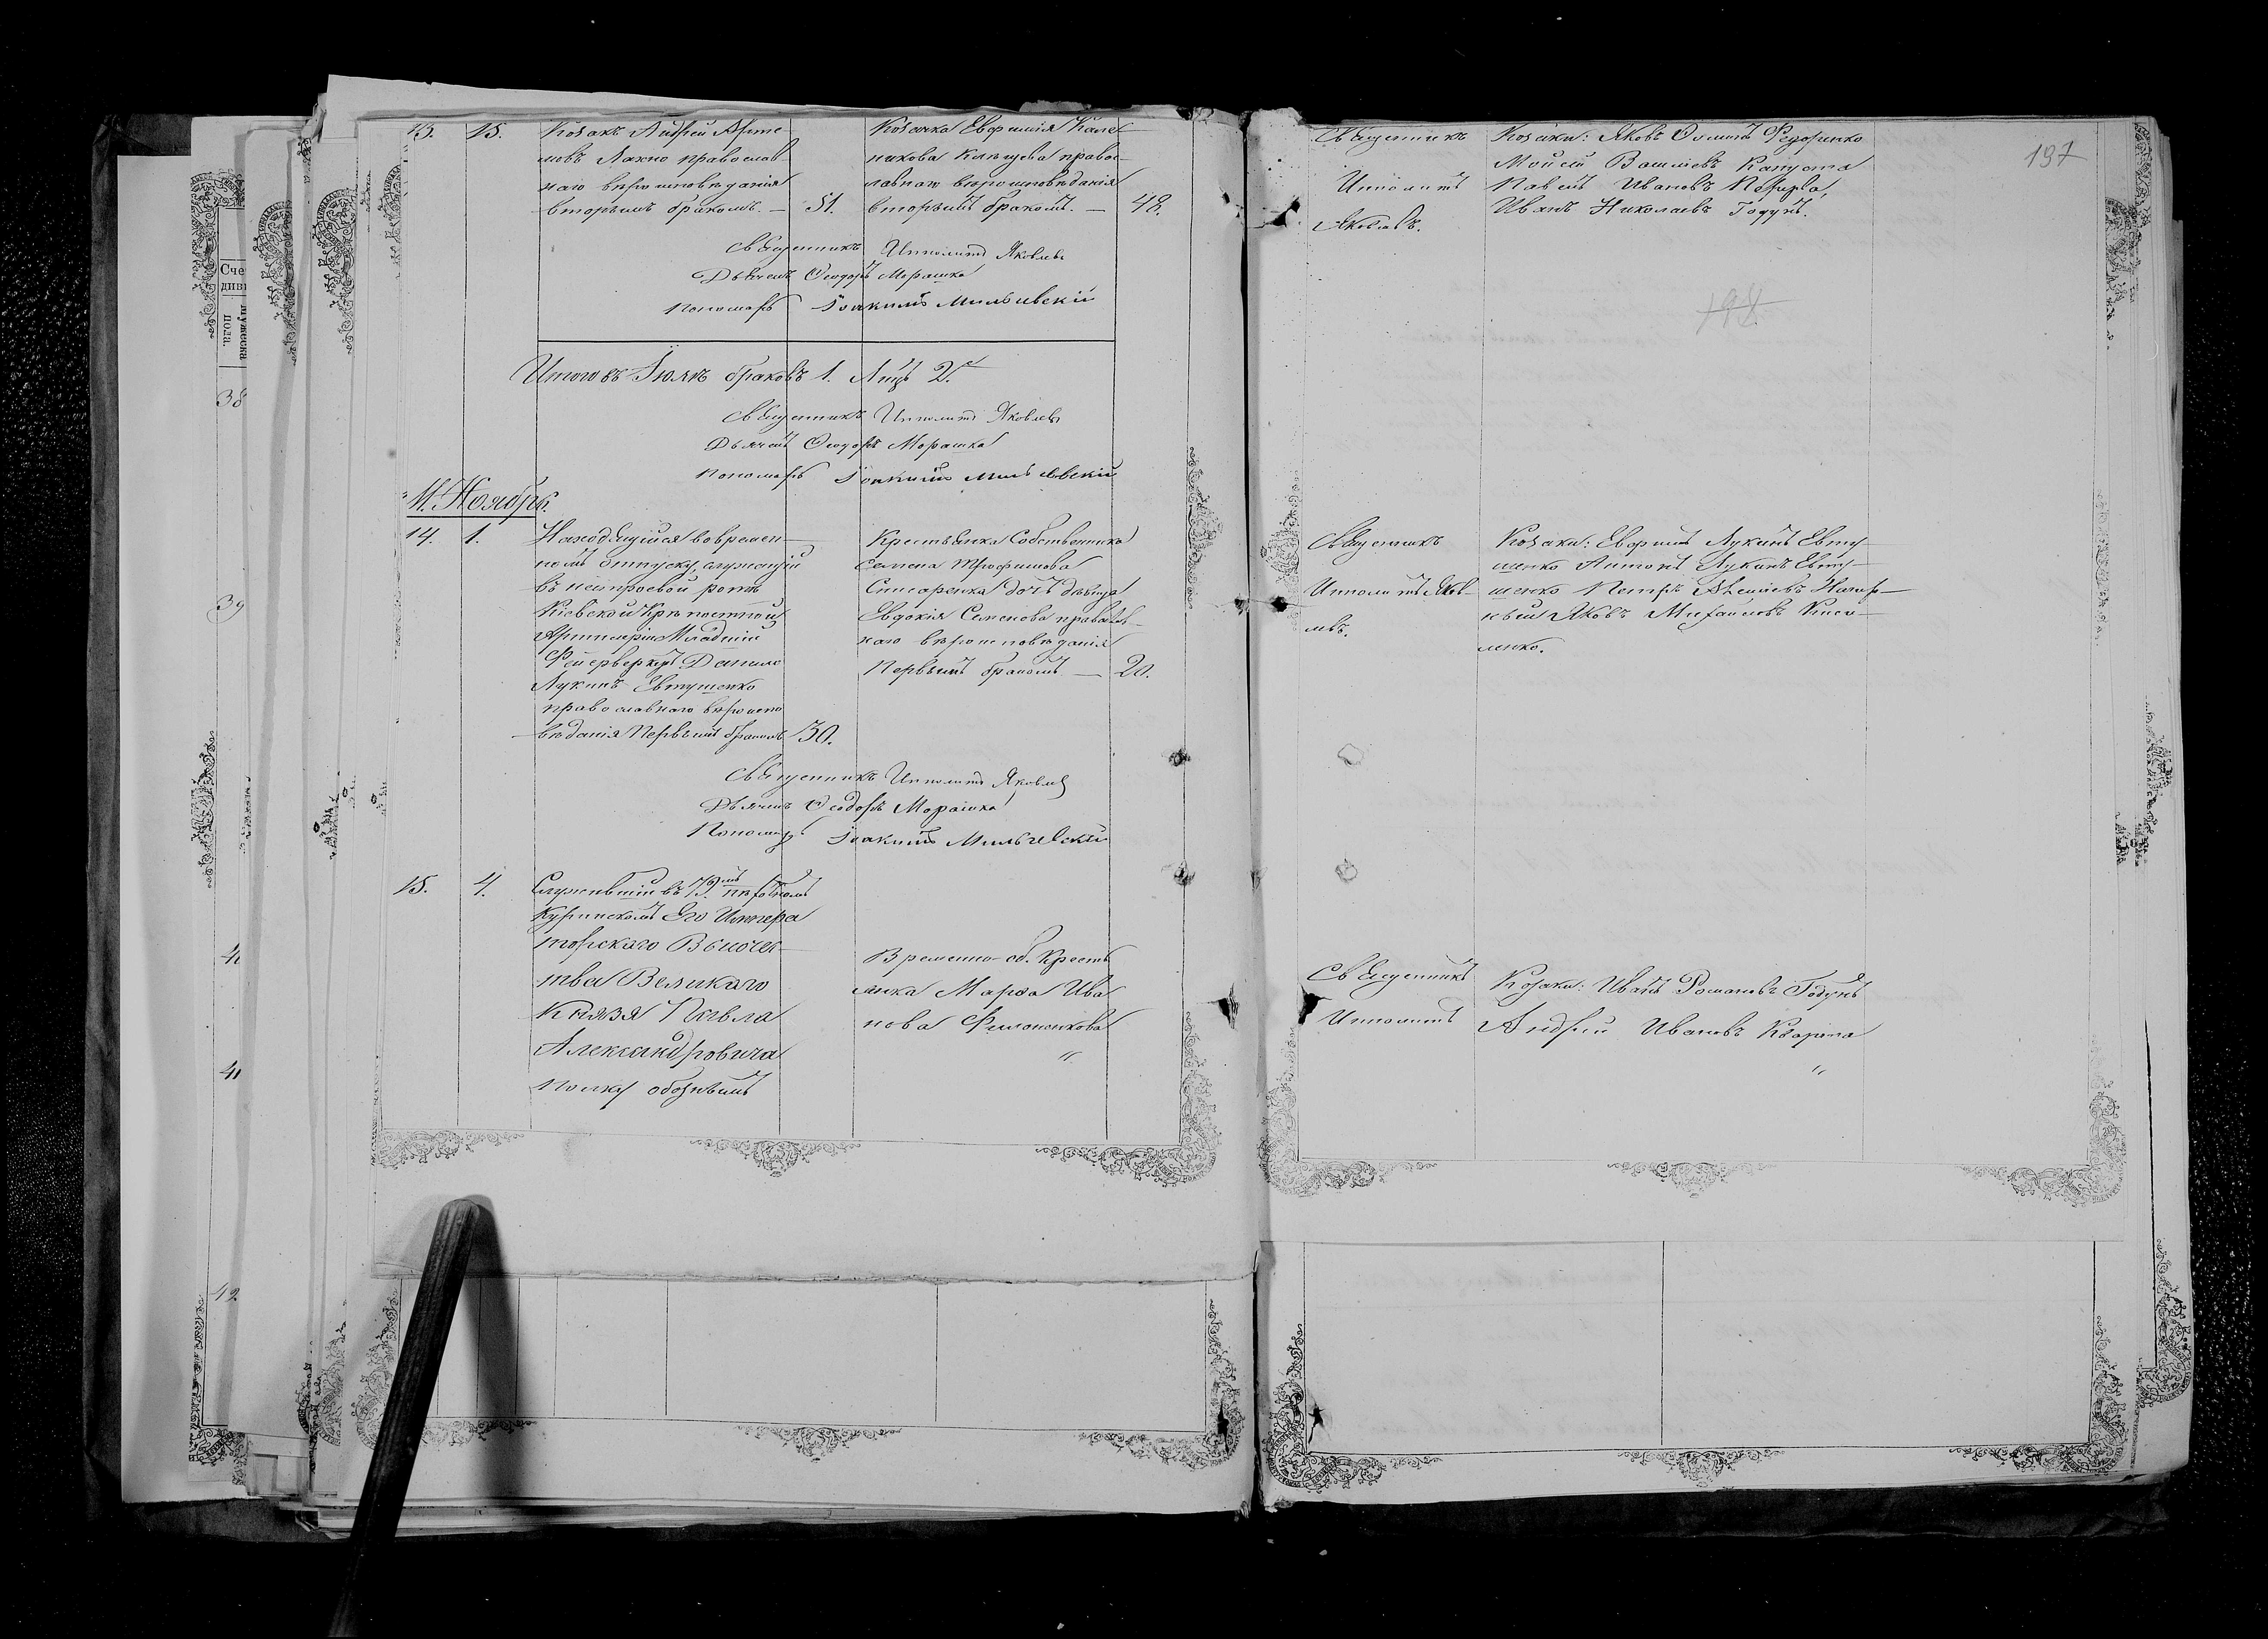 13. 15. Козакъ Андрей Арте
мовъ Лахно православ-
наго вѣроисповѣданія
вторымъ бракомъ. — 51.
Козачка Евфимія
никова Клѣщева правос-
лавнаго вѣроисповѣданія
вторымъ бракомъ. — 42.
Священникъ Ипполитъ Яковлевъ
Дьячекъ Ѳеодоръ Морашка
Пономарь Іоакимъ Мильчевскій
Итого въ Іюлѣ браковъ 1. Лицъ 2.
Священникъ Ипполитъ Яковлевъ
Дьячекъ Ѳеодоръ Морашка
Пономарь Іоакимъ Мильчевскій
Ноябрь.
14. 1. Находящійся во времен-
номъ отпуску, служащій
въ нестроевой ротѣ
Кіевской Крѣпостной
Артиллеріи Младшій
Фейерверкеръ Данило
Лукинъ Евтушенко
православнаго вѣроиспо
вѣданія Первымъ бракомъ 30.
Крестьянка Собственника
Семена Трофимова
Списаренка дочь дѣвица
Евдокія Семенова православ-
наго вѣроисповѣданія
Первымъ бракомъ — 20.
Священникъ Ипполитъ Яковлевъ
Дьячекъ Ѳеодоръ Морашка
Пономарь Іоакимъ Мильчевскій
15. 4. Служившій въ 79мъ пѣхотномъ
Куринскомъ Его Импера
торскаго Высочес-
тва Великаго
Князя Павла
Александровича
полку обознымъ
Временно-об. Кресть
янка Марѳа Ива
нова Филоненкова
"
Священникъ
Ипполитъ
Яковлевъ.
Козаки: Яковъ Ѳоминъ Федоренко
Мойсей Василіевъ Капуста
Павелъ Ивановъ
Иванъ Николаевъ Годунъ.
197
198
Священникъ
Ипполитъ Яков-
левъ.
Козаки: Евфимъ Лукинъ Евту-
шенко Антонъ Лукинъ Евту-
шенко Петръ
Яковъ Михайловъ Кисе-
ленко.
Священникъ
Ипполитъ
Козаки: Иванъ Романовъ Годунъ
Андрей Ивановъ Кварта
"
Сче
дивш
мужеска
пола.
38
39
40
41
42